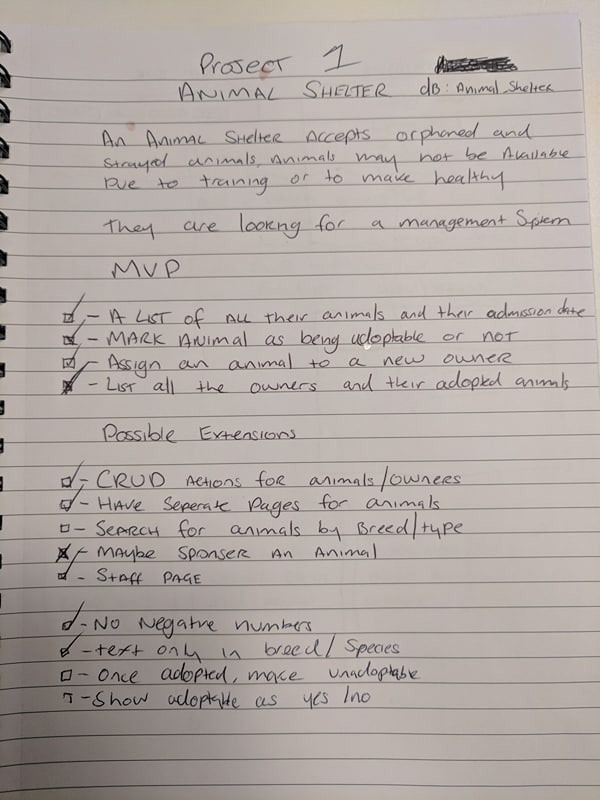 Project 1
ANIMAL SHELTER dB: Animal_Shelter
An Animal Shelter Accepts orphaned and
strayed animals, Animals may not be Available
Due to training or to make healthy
They are looking for a management System
MVP
- A LIST of ALL their animals and their admission date
- MARK Animal as being adoptable or not
- Assign an animal to a new owner
- List all the owners and their adopted animals
Possible Extensions
- CRUD Actions for animals/owners
- HAVE Seperate Pages for animals
- SEARCH for animals by Breed/type
- MAYBE Sponser An Animal
- STAFF PAGE
- No Negative numbers
- text only in breed/Species
- Once adopted, make unadoptable
- Show adoptable as yes/no